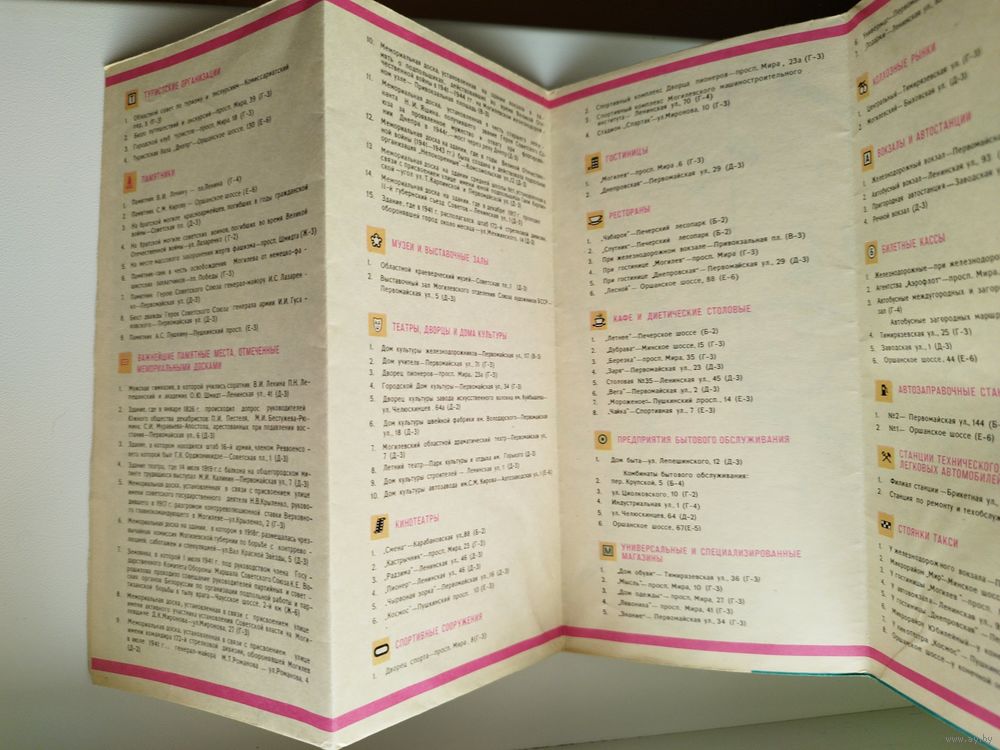 ТУРИСТСКИЕ ОРГАНИЗАЦИИ
1. Областной совет по туризму и экскурсиям—Комиссариатский
пер., 5 (Г-3)
2. Бюро путешествий и экскурсий—просп. Мира, 39 (Г-3)
3. Городской клуб туристов—просп. Мира, 18 (Г-3)
4. Туристская база „Днепр"—Оршанское шоссе, 130 (Е-6)
ПАМЯТНИКИ
1. Памятник В.И. Ленину — пл. Ленина (Г-4)
2. Памятник С.М. Кирову — Оршанское шоссе (Е-6)
3. На братской могиле красноармейцев, погибших в годы гражданской
войны—Советская пл. (Д-3)
4. На братской могиле советских воинов, погибших во время Великой
Отечественной войны—ул. Лазаренко (Г-2)
5. На месте массового захоронения жертв фашизма—просп. Шмидта (Ж-3)
6. Памятник-знак в честь освобождения Могилева от немецко-фа-
шистских захватчиков—пл. Победы (Г-3)
7. Памятник Герою Советского Союза генерал-майору И.С. Лазарен-
ко—Первомайская ул. (Д-3)
8. Бюст дважды Героя Советского Союза генерала армии И.И. Гуса-
ковского—Первомайская ул. (Д-3)
9. Памятник А.С. Пушкину—Пушкинский просп. (Е-3)
ВАЖНЕЙШИЕ ПАМЯТНЫЕ МЕСТА, ОТМЕЧЕННЫЕ
МЕМОРИАЛЬНЫМИ ДОСКАМИ
1. Мужская гимназия, в которой учились соратник В.И. Ленина П.Н. Ле-
пешинский и академик О.Ю. Шмидт—Ленинская ул., 41 (Д-3)
2. Здание, где в январе 1826 г. происходил допрос руководителей
Южного общества декабристов: П.И. Пестеля, М.И. Бестужева-Рю-
мина, С.И. Муравьева-Апостола, арестованных при подавлении вос-
стания—Первомайская ул., 6 (Д-3)
3. Здание, в котором находился штаб 16-й армии, членом Реввоенсо-
вета которой был Г.К. Орджоникидзе—Советская пл., 1 (Д-3)
4. Здание театра, где 14 июля 1919 г. с балкона на общегородском ми-
тинге трудящихся выступал М.И. Калинин—Первомайская ул., 7 (Д-3)
5. Мемориальная доска, установленная в связи с присвоением улице
имени советского государственного деятеля Н.В. Крыленко, руково-
дившего в 1917 г. разгромом контрреволюционной ставки Верховно-
го главнокомандующего в Могилеве—ул. Крыленко, 2 (Г-3)
6. Мемориальная доска на здании, в котором в 1918 г. размещалась чрез-
вычайная комиссия Могилевской губернии по борьбе с контррево-
люцией, саботажем и спекуляцией—ул. Вал Красной Звезды, 5 (Д-3)
7. Землянка, в которой 1 июля 1941 г. под руководством члена Госу-
дарственного Комитета Обороны Маршала Советского Союза К.Е. Во-
рошилова проходило совещание руководителей партийных и совет-
ских органов Белоруссии по организации подпольной работы и пар-
тизанской борьбы в тылу врага—Чаусское шоссе, 2-й км (Ж-6)
8. Мемориальная доска, установленная в связи с присвоением улице
имени активного участника установления Советской власти на Моги-
левщине Д.К. Миронова—ул. Миронова, 27 (Г-3)
9. Мемориальная доска, установленная в связи с присвоением улице
имени командира 172-й стрелковой дивизии, оборонявшей Могилев
в июле 1941 г., генерал-майора М.Т. Романова — ул. Романова, 4
(Д-2)
10. Мемориальная доска, установленная на здании вокзала в па-
мять о подпольщиках, действовавших во время Великой Оте-
чественной войны в 1941—1944 гг. на Могилевском железнодорож-
ном узле— Привокзальная площадь (В-3)
11. Мемориальная доска, установленная в честь старшего лейте-
нанта Н.И. Яшина, получившего звание Героя Советского Со-
юза за проявленное мужество и отвагу при форсирова-
нии Днепра в 1944 г.—мост через реку Днепр (Д-3)
12. Мемориальная доска на здании, где в годы Великой Отечествен-
ной войны (1941—1943 гг.) была создана и действовала подпольная
организация „Непокоренные"—Комсомольская ул., (Д-3)
13. Мемориальная доска на здании средней школы №1, установленная в
связи с присвоением улице имени юной подпольщицы Тани Карпин-
ской —угол ул. Т. Карпинской и Первомайской ул. (Д-3)
14. Мемориальная доска на здании, где в декабре 1917 г. проходил
II-й губернский съезд Советов—Ленинская ул., 1 (Д-3)
15. Здание, где в 1941 г. располагался штаб 172-й стрелковой дивизии,
оборонявшей город около месяца—ул. Менжинского, 14 (Д-2)
МУЗЕИ И ВЫСТАВОЧНЫЕ ЗАЛЫ
1. Областной краеведческий музей—Советская пл., 1 (Д-3)
2. Выставочный зал Могилевского отделения Союза художников БССР —
Первомайская ул., 5 (Д-3)
ТЕАТРЫ, ДВОРЦЫ И ДОМА КУЛЬТУРЫ
1. Дом культуры железнодорожников—Первомайская ул., 117 (В-3)
2. Дом учителя—Первомайская ул., 71 (Г-3)
3. Дворец пионеров—просп. Мира, 23а (Г-3)
4. Городской Дом культуры—Первомайская ул., 34 (Г-3)
5. Дворец культуры завода искусственного волокна им. Куйбышева—
ул. Челюскинцев, 64а (Д-2)
6. Дом культуры швейной фабрики им. Володарского—Первомайская
ул., 18 (Д-3)
7. Могилевский областной драматический театр—Первомайская ул.,
7 (Д-3)
8. Летний театр—Парк культуры и отдыха им. Горького (Д-3)
9. Дом культуры строителей — Ленинская ул., 1 (Д-3)
10. Дом культуры автозавода им. С.М. Кирова—Автозаводская ул., 1 (Е-6)
КИНОТЕАТРЫ
1. „Смена"—Карабановская ул., 88 (Б-2)
2. „Кастрычник"—просп. Мира, 23 (Г-3)
3. „Радзима"—Ленинская ул., 46 (Д-3)
4. „Пионер"—Ленинская ул., 46 (Д-3)
5. „Чырвоная зорка"—Первомайская ул., 16 (Д-3)
6. „Космос"—Пушкинский просп. 10 (Е-3)
СПОРТИВНЫЕ СООРУЖЕНИЯ
1. Дворец спорта—просп. Мира, 8 (Г-3)
2. Спортивный комплекс Дворца пионеров—просп. Мира, 23а (Г-3)
3. Спортивный комплекс Могилевского машиностроительного
института— Ленинская ул., 70 (Г-4)
4. Стадион „Спартак"—ул. Миронова, 10 (Г-3)
ГОСТИНИЦЫ
1. „Могилев"—просп. Мира, 6 (Г-3)
2. „Днепровская"—Первомайская ул., 29 (Д-3)
РЕСТОРАНЫ
1. „Чабарок"—Печерский лесопарк (Б-2)
2. „Спутник"—Печерский лесопарк (Б-2)
3. При железнодорожном вокзале—Привокзальная пл. (В-3)
4. При гостинице „Могилев"—просп. Мира (Г-3)
5. При гостинице „Днепровская"—Первомайская ул., 29 (Д-3)
6. „Лесной"— Оршанское шоссе, 88 (Е-6)
КАФЕ И ДИЕТИЧЕСКИЕ СТОЛОВЫЕ
1. „Летнее"—Печерское шоссе (Б-2)
2. „Дубрава"—Минское шоссе, 15 (Г-3)
3. „Березка"—просп. Мира, 35 (Г-3)
4. „Заря"—Первомайская ул., 23 (Д-3)
5. Столовая №35—Ленинская ул., 45 (Д-3)
6. „Вега"—Первомайская ул., 2 (Д-3)
7. „Мороженое"—Пушкинский просп., 14 (Е-3)
8. „Чайка"—Спортивная ул., 7 (Е-3)
ПРЕДПРИЯТИЯ БЫТОВОГО ОБСЛУЖИВАНИЯ
1. Дом быта—ул. Лепешинского, 12 (Д-3)
Комбинаты бытового обслуживания:
2. пер. Крупской, 5 (Б-4)
3. ул. Циолковского, 10 (Г-2)
4. Индустриальная ул., 1 (Г-4)
5. ул. Челюскинцев, 64 (Д-2)
6. Оршанское шоссе, 67 (Е-5)
УНИВЕРСАЛЬНЫЕ И СПЕЦИАЛИЗИРОВАННЫЕ
МАГАЗИНЫ
1. „Дом обуви"—Тимирязевская ул., 36 (Г-3)
2. „Мысль"—просп. Мира, 10 (Г-3)
3. „Дом одежды"—просп. Мира, 27 (Г-3)
4. „Левониха"— просп. Мира, 41 (Г-3)
5. „Знание"—Первомайская ул., 34 (Г-3)
6. Универмаг—Первомайская
7. „Подарки"—Ленинская ул.,
(Д-3)
КОЛХОЗНЫЕ РЫНКИ
1. Центральный—Тимирязевская ул. (Г-3)
2. Могилевский—Быховская ул. (Д-3)
ВОКЗАЛЫ И АВТОСТАНЦИИ
1. Железнодорожный вокзал—Первомайск
2. Автобусный вокзал—Ленинская ул., 93
3. Пригородная автостанция—Заводская у
4. Речной вокзал (Д-3)
БИЛЕТНЫЕ КАССЫ
1. Железнодорожные—при железнодорож
2. Агентства „Аэрофлот"—просп. Мира
3. Автобусные междугородных и загор
зал (Г-4)
Автобусные загородных маршру
4. Тимирязевская ул., 25 (Г-3)
5. Заводская ул., 1 (Д-3)
6. Оршанское шоссе, 44 (Е-6)
АВТОЗАПРАВОЧНЫЕ СТАН
1. №2— Первомайская ул., 144 (Б-
2. №1— Оршанское шоссе (Е-6)
СТАНЦИИ ТЕХНИЧЕСКОГО
ЛЕГКОВЫХ АВТОМОБИЛЕЙ
1. Филиал станции—Брикетная ул.
2. Станция по ремонту и техобслуж
СТОЯНКИ ТАКСИ
1. У железнодорожного вокзала—п
2. Микрорайон „Мир"—Минское шосс
3. У магазина „Дом одежды"—просп.
4. У гостиницы „Могилев"—просп.
5. У автовокзала—Ленинская ул.
6. У гостиницы „Днепровская"—Пе
7. Микрорайон Юбилейный—у коне
8. У кинотеатра „Космос"—Пушки
9. Оршанское шоссе—у конечной о
www.ay.by